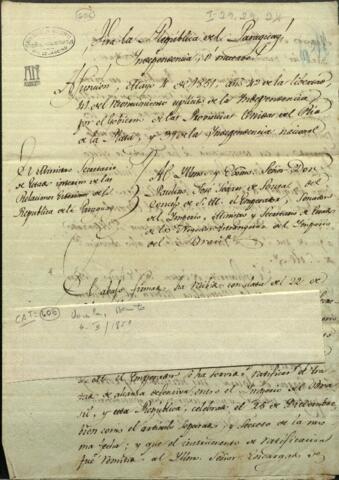 I-29, 29, 24
606
Viva la Republica del Paraguay!
Independencia, ó muerte!
Asuncion, Mayo 4 de 1851, año 42 de la libertad,
41 del reconocimiento explicito de la Independencia
por el Gobierno de las Provincias Unidas del Rio
de la Plata y 39 de la Independencia nacional
El Ministro Secretario
de Estado interino de las
Relaciones Exteriores de la
Republica del Paraguay
Al Illmo y Exmo Señor Don
Paulino José Soares de Souza del
Consejo de S. M. el Emperador, Senador
del Imperio, Ministro y Secretario de Estado
de los Negocios Extrangeros del Imperio
del Brasil
El abajo firmado ha recibido
22 de
CAT-606
1851
el Emperador ha tenido ratificar el trata
de alianza defensiva entre el Imperio del Bra
sil, y esta Republica, celebrado el 25 de Diciembre
bien como el articulo separado y secreto de la mis
ma fecha; y que el instrumento de ratificacion
fué remitido al Illmo. Señor Encargado de